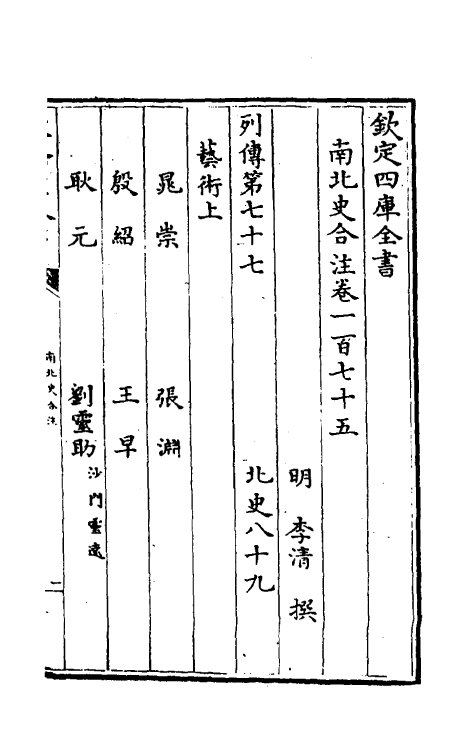 欽定四庫全書
南北史合注卷一百七十五
明 李清 撰
列傳第七十七 北史八十九
藝術上
晁崇 張淵
殷紹 王早
耿元 劉靈助 沙門靈遠
南北史合注